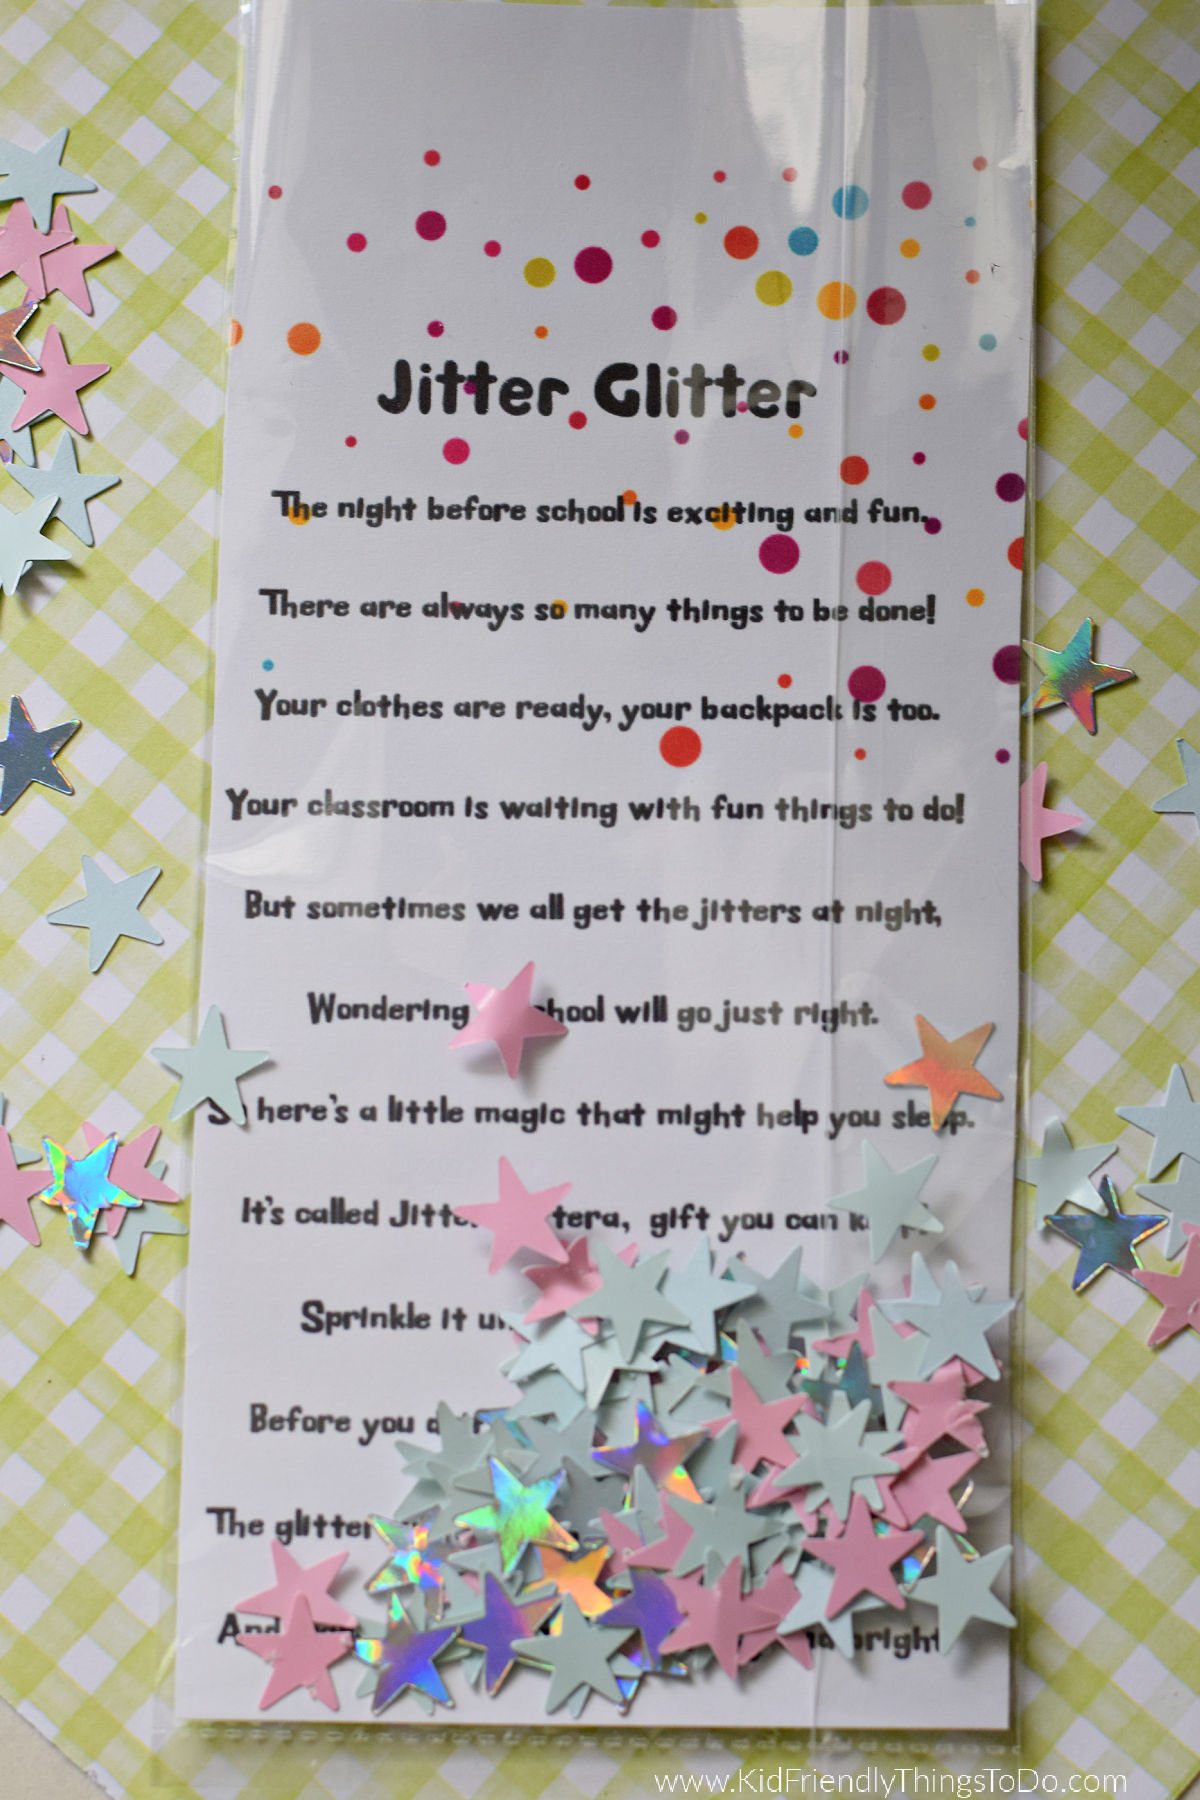 Jitter Glitter
The night before school is exciting and fun.
There are always so many things to be done!
Your clothes are ready, your backpack is too.
Your classroom is waiting with fun things to do!
But sometimes we all get the jitters at night,
Wondering will go just right.
here's a little magic that might help you sleep.
It's called gift you can
Sprinkle it
Before you
The glitter
And bright
www.KidFriendlyThingsToDo.com